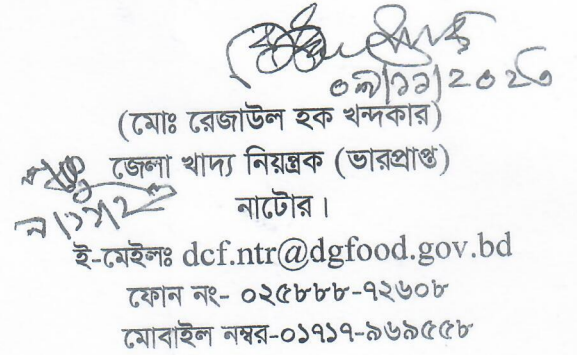 (মোঃ রেজাউল হক খন্দকার)
জেলা খাদ্য নিয়ন্ত্রক (ভারপ্রাপ্ত)
নাটোর।
ই-মেইলঃ dcf.ntr@dgfood.gov.bd
ফোন নং- ০২৫৮৮৮-৭২৬০৮
মোবাইল নম্বর-০১৭১৭-৯৬৯৫৫৮